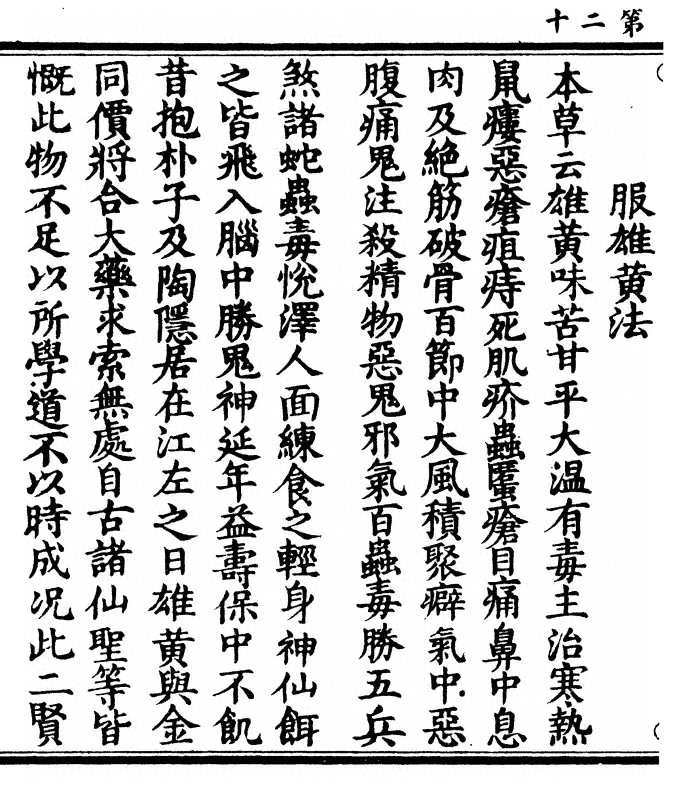 第二十
服雄黄法
本草云雄黄味苦甘平大温有毒主治寒熱
鼠瘻惡瘡疽痔死肌疥蟲䘌瘡目痛鼻中息
肉及絶筋破骨百節中大風積聚癖氣中惡
腹痛鬼注殺精物惡鬼邪氣百蟲毒勝五兵
煞諸蛇蟲毒悅澤人面練食之輕身神仙餌
之皆飛入腦中勝鬼神延年益壽保中不飢
昔抱朴子及陶隱居在江左之日雄黄與金
同價將合大藥求索無處自古諸仙聖等皆
慨此物不足以所學道不以時成况此二賢